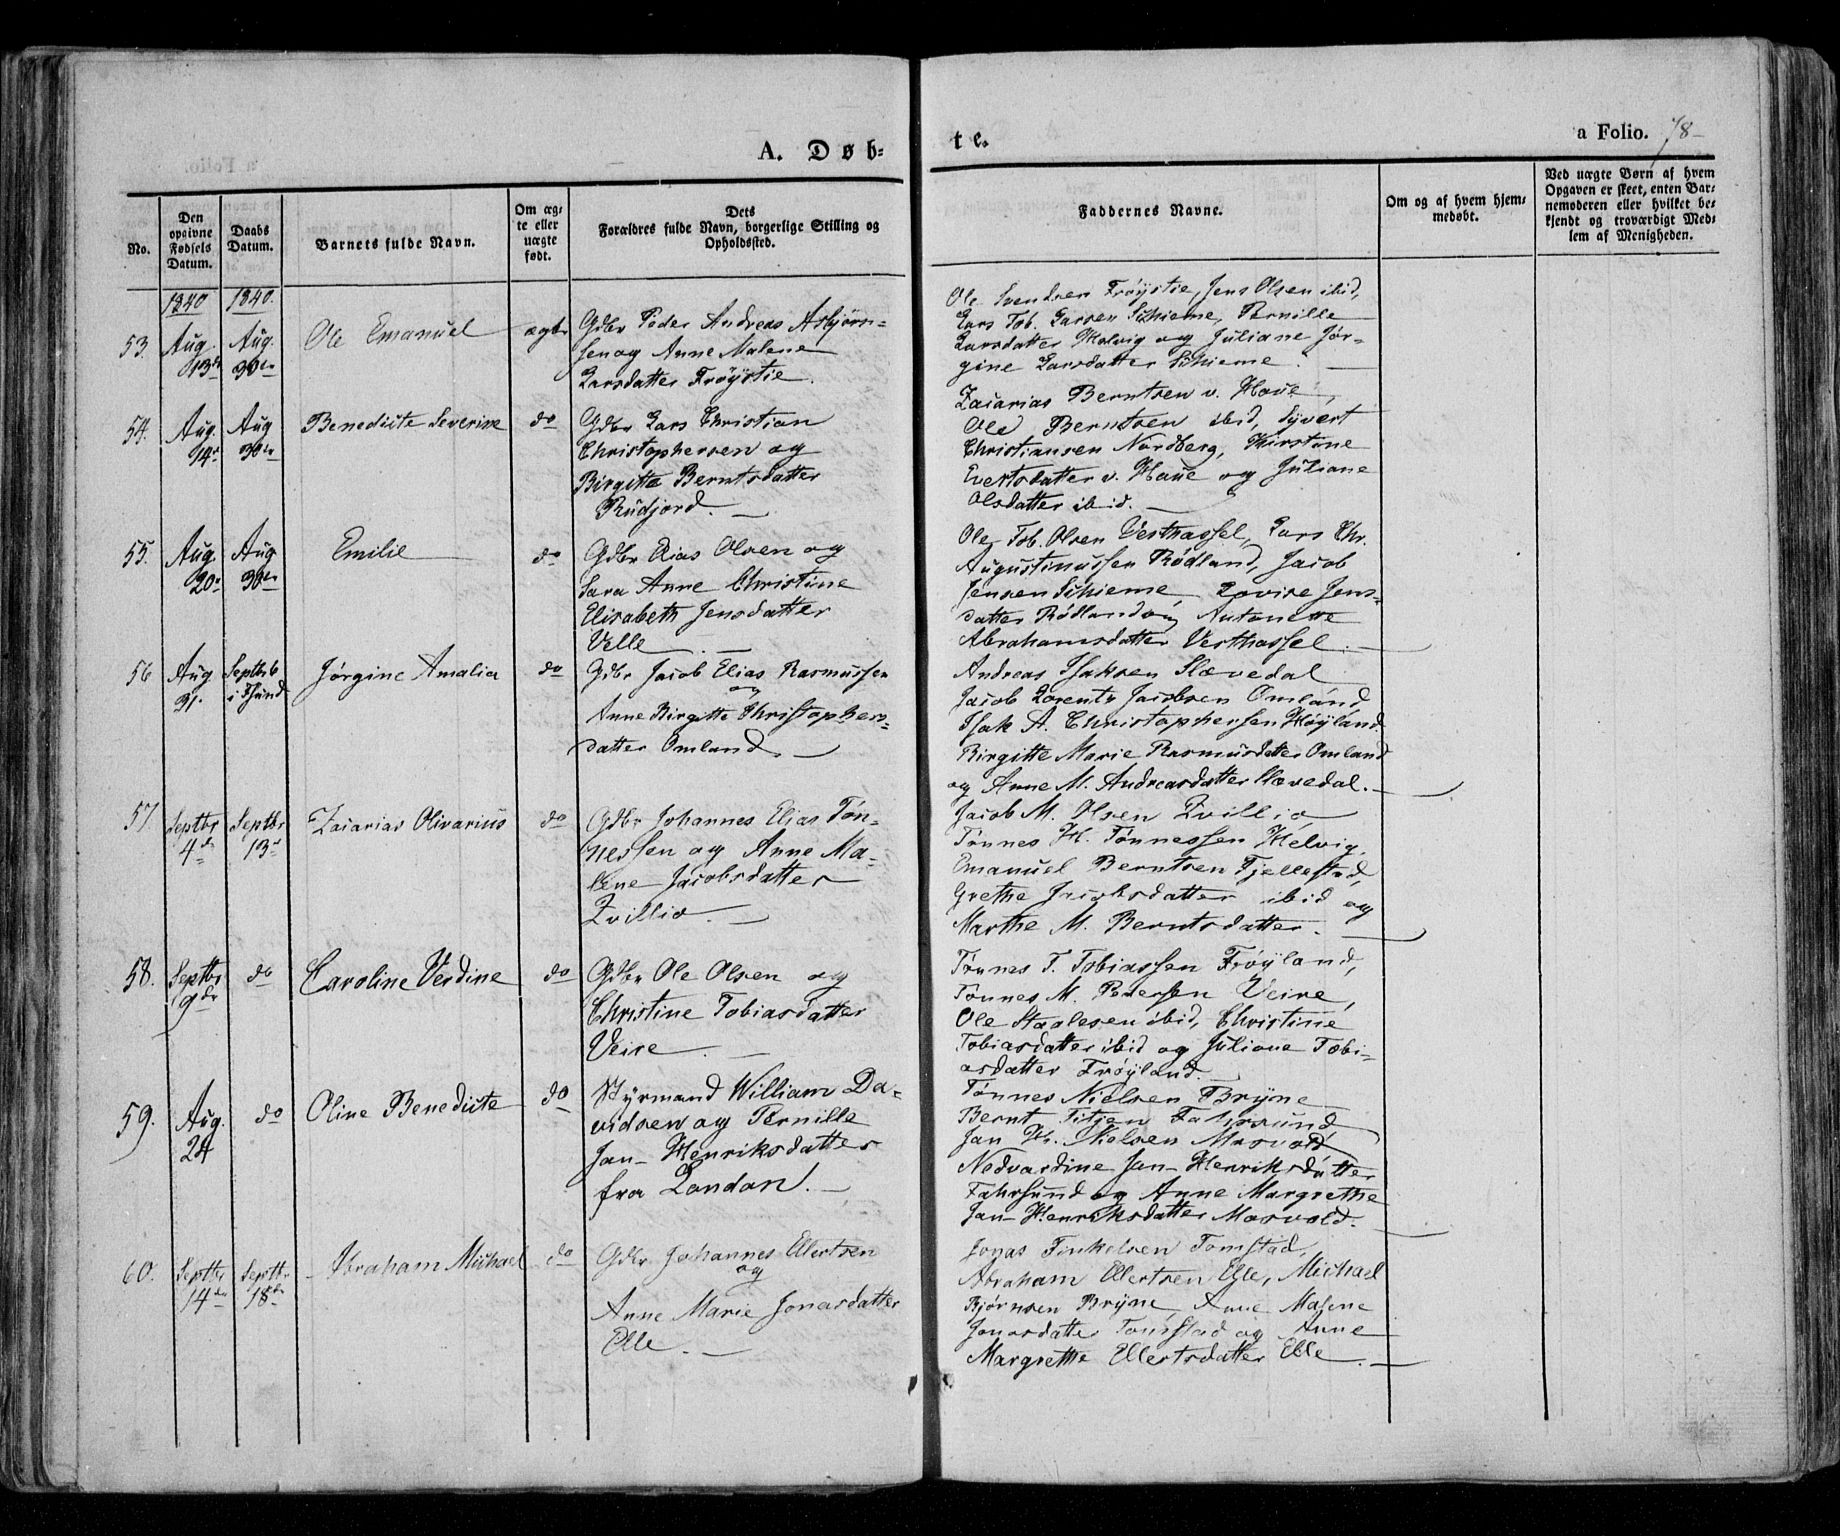 A. Døb-
te.
a Folio. 78
No.
Den opgivne Fødsels Datum.
Daabs Datum.
Barnets fulde Navn.
Om ægte eller uægte født.
Dets
Forældres fulde Navn, borgerlige Stilling og
Opholdssted.
Faddernes Navne.
Om og af hvem hjem-
medøbt.
Ved uægte Børn af hvem
Opgaven er skeet, enten Bar-
nemoderen eller hvilket be-
kjendt og troværdigt Med-
lem af Menigheden.
1840 1840.
53. Aug. 13de Aug. 30te Ole Emanuel ægte
Gdbr Peder Andreas Asbjørn-
sen og Anne Malene
Larsdatter Frøystie.
Ole Svendsen Frøystie, Jens Olsen ibid,
Lars Tob. Larsen Schieme, Pernille
Larsdatter Helvig og Juliane Jør-
gine Larsdatter Schieme.
54. Aug. 14d Aug 30te Benedicte Severine do
Gdbr Lars Christian
Christophersen og
Birgitte Berntsdatter
Rudjord.
Zacarias Berntsen v. Haue,
Ole Berntsen ibid, Syvert
Christiansen Nordberg, Kirstine
Evertsdatter v. Haue og Juliane
Olsdatter ibid.
55. Aug. 20de Aug 30te Emilie do
Gdbr Elias Olsen og
Sara Anne Christine
Elisabeth Jensdatter
Velle.
Ole Tob. Olsen Vesthassel, Lars Chr.
Augustinussen Rødland, Jacob
Jensen Schieme, Lovise Jens-
datter Rødland og Antonette
Abrahamsdatter Vesthassel.
56 Aug 31. Septb 6 i Hund Jørgine Amalia do
Gdbr Jacob Elias Rasmussen
og
Anne Birgitte Christophers-
datter Omland.
Andreas Isaksen Slævedal
Jacob Lorents Jacobsen Omland,
Isak A. Christophersen Høyland
Birgitte Marie Rasmusdatter Omland
og Anne M. Andreasdatter Slævedal.
57 Septbr 4de Septbr 13de Zacarias Olivarius do
Gdbr Johannes Elias Tøn-
nessen og Anne Ma-
lene Jacobsdatter
Zvillio.
Jacob M. Olsen Zvillio
Tønnes H. Tønnessen Helvig,
Emanuel Berntsen Fjellestad,
Grethe Jacobsdatter ibid og
Marthe M. Berntsdatter.
58. Septbr 9de do Caroline Verdine do
Gdbr Ole Olsen og
Christine Tobiasdatter
Veire.
Tønnes T. Tobiassen Frøyland,
Tønnes M. Pedersen Veire,
Ole Staalesen ibid, Christine
Tobiasdatter ibid og Juliane Tobi-
asdatter Frøyland.
59. Aug. 24 do Oline Benedicte do
Styrmand William Da-
vidsen og Pernille
Jan-Henriksdatter
fra London.
Tønnes Nielsen Bryne
Bernt Titjen Fahrsund
Jan H. Nielsen Mosvold
Nedvardine Jan-Henriksdatter
Fahrsund og Anne Margrethe
Jan-Henriksdatter Mosvold.
60. Septbr 14de Septbr 18de Abraham Michael do
Gdbr Johannes Ellertsen
og
Anne Marie Jonasdatter
Elle.
Jonas Finkelsen Tomstad,
Abraham Ellertsen Elle, Michael
Bjørnsen Bryne, Anne Malene
Jonasdatter Tomstad og Anne
Margrethe Ellertsdatter Elle.